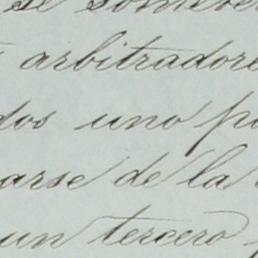 se somete
arbitradore
dos uno po
arse de la
un tercero